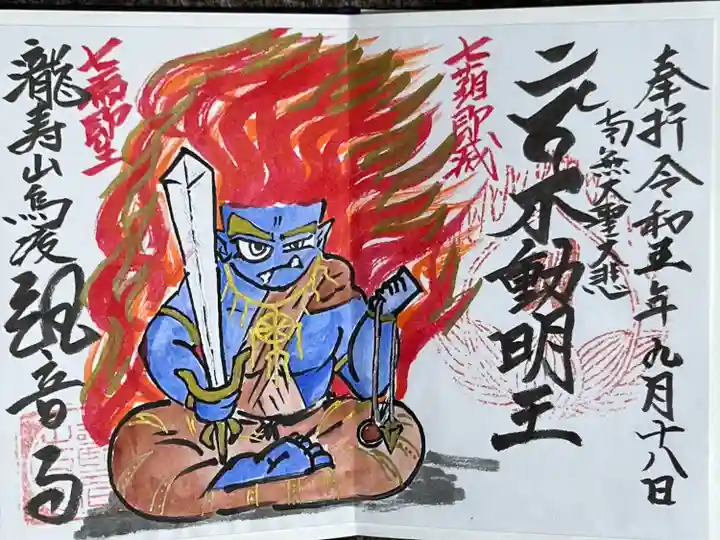 奉拝 令和五年九月十八日
南無大聖大悲
不動明王
七難即滅
七福即生
瀧寿山鳥渡観音寺